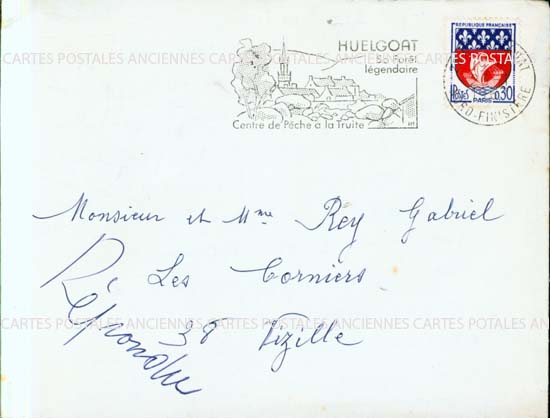 HUELGOAT
Sa Forêt
légendaire
Centre de Pêche à la Truite
REPUBLIQUE FRANÇAISE
Postes
PARIS
0,30
RD-FINISTERE
CARTES POSTALES ANCIENNES CARTES POSTALES ANCIENNES CARTES POSTALES ANCIENNES
Monsieur et Mme Rey Gabriel
Les Corniers
38 Vizille
Répondre
CARTES POSTALES ANCIENNES CARTES POSTALES ANCIENNES CARTES POTALES ANCIENNES